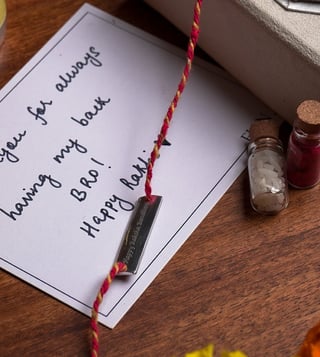 you for always
having my back
BRO!
Happy Rakhi
Happy Raksha